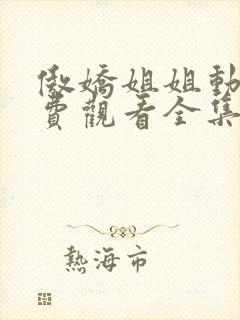 傲嬌姐姐動
費觀看全集
熱海市